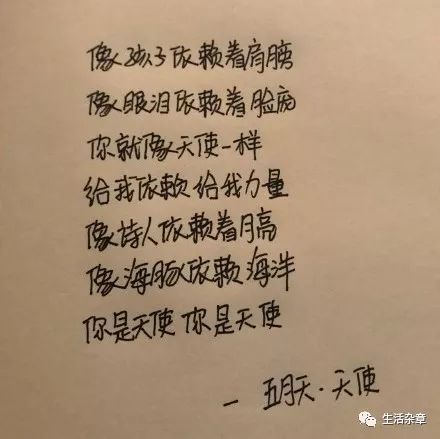 像孩子依赖着肩膀
像眼泪依赖着脸庞
你就像天使一样
给我依赖 给我力量
像诗人依赖着月亮
像海豚依赖海洋
你是天使 你是天使
- 五月天·天使
生活杂章